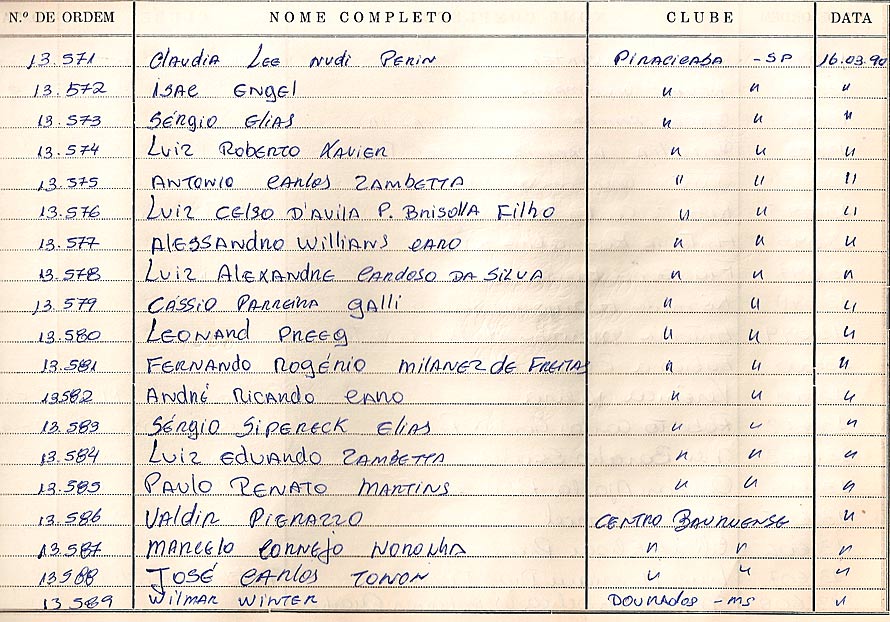 N.º DE ORDEM NOME COMPLETO CLUBE DATA
13.571 Claudia Lee Nudi Perin Piracicaba - SP 16.03.90
13.572 Isae Engel " " "
13.573 Sérgio Elias " " "
13.574 Luiz Roberto Xavier " " "
13.575 Antonio Carlos Zambetta " " "
13.576 Luiz Celso D'Avila P. Brisolla Filho " " "
13.577 Alessandro Willians Caro " " "
13.578 Luiz Alexandre Cardoso da Silva " " "
13.579 Cássio Parreira Galli " " "
13.580 Leonard Preeg " " "
13.581 Fernando Rogério Milanez de Freitas " " "
13582 André Ricardo Caro " " "
13.583 Sérgio Sipereck Elias " " "
13.584 Luiz Eduardo Zambetta " " "
13.585 Paulo Renato Martins " " "
13.586 Valdir Pierazzo Centro Bauruense "
13.587 Marcelo Cornejo Noronha " " "
13588 José Carlos Tonon " " "
13.589 Wilmar Winter Dourados - MS "